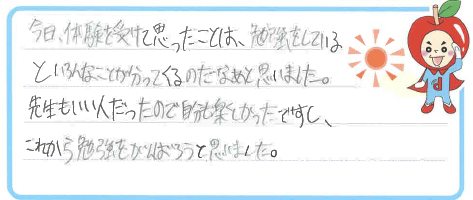 今日、体験を受けて思ったことは、勉強をしている
といろんなことが分ってくるのだなあと思いました。
先生もいい人だったので自分も楽しかったですし、
これから勉強をがんばろうと思いました。
d